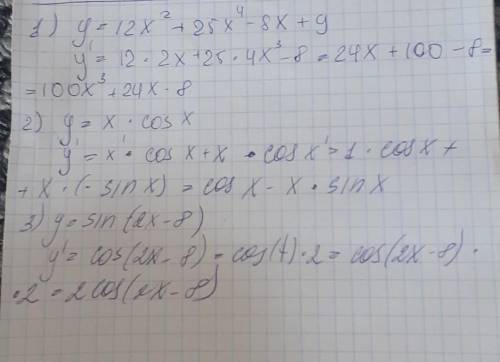 1) y = 12x² + 25x⁴ - 8x + 9
y' = 12 · 2x + 25 · 4x³ - 8 = 24x + 100 - 8 =
= 100x³ + 24x · 8
2) y = x · cos x
y' = x' · cos x + x · cos x' = 1 · cos x +
+ x · (- sin x) = cos x - x · sin x
3) y = sin (2x - 8)
y' = cos(2x - 8) = cos(t) · 2 = cos(2x - 8) ·
· 2 = 2cos(2x - 8)